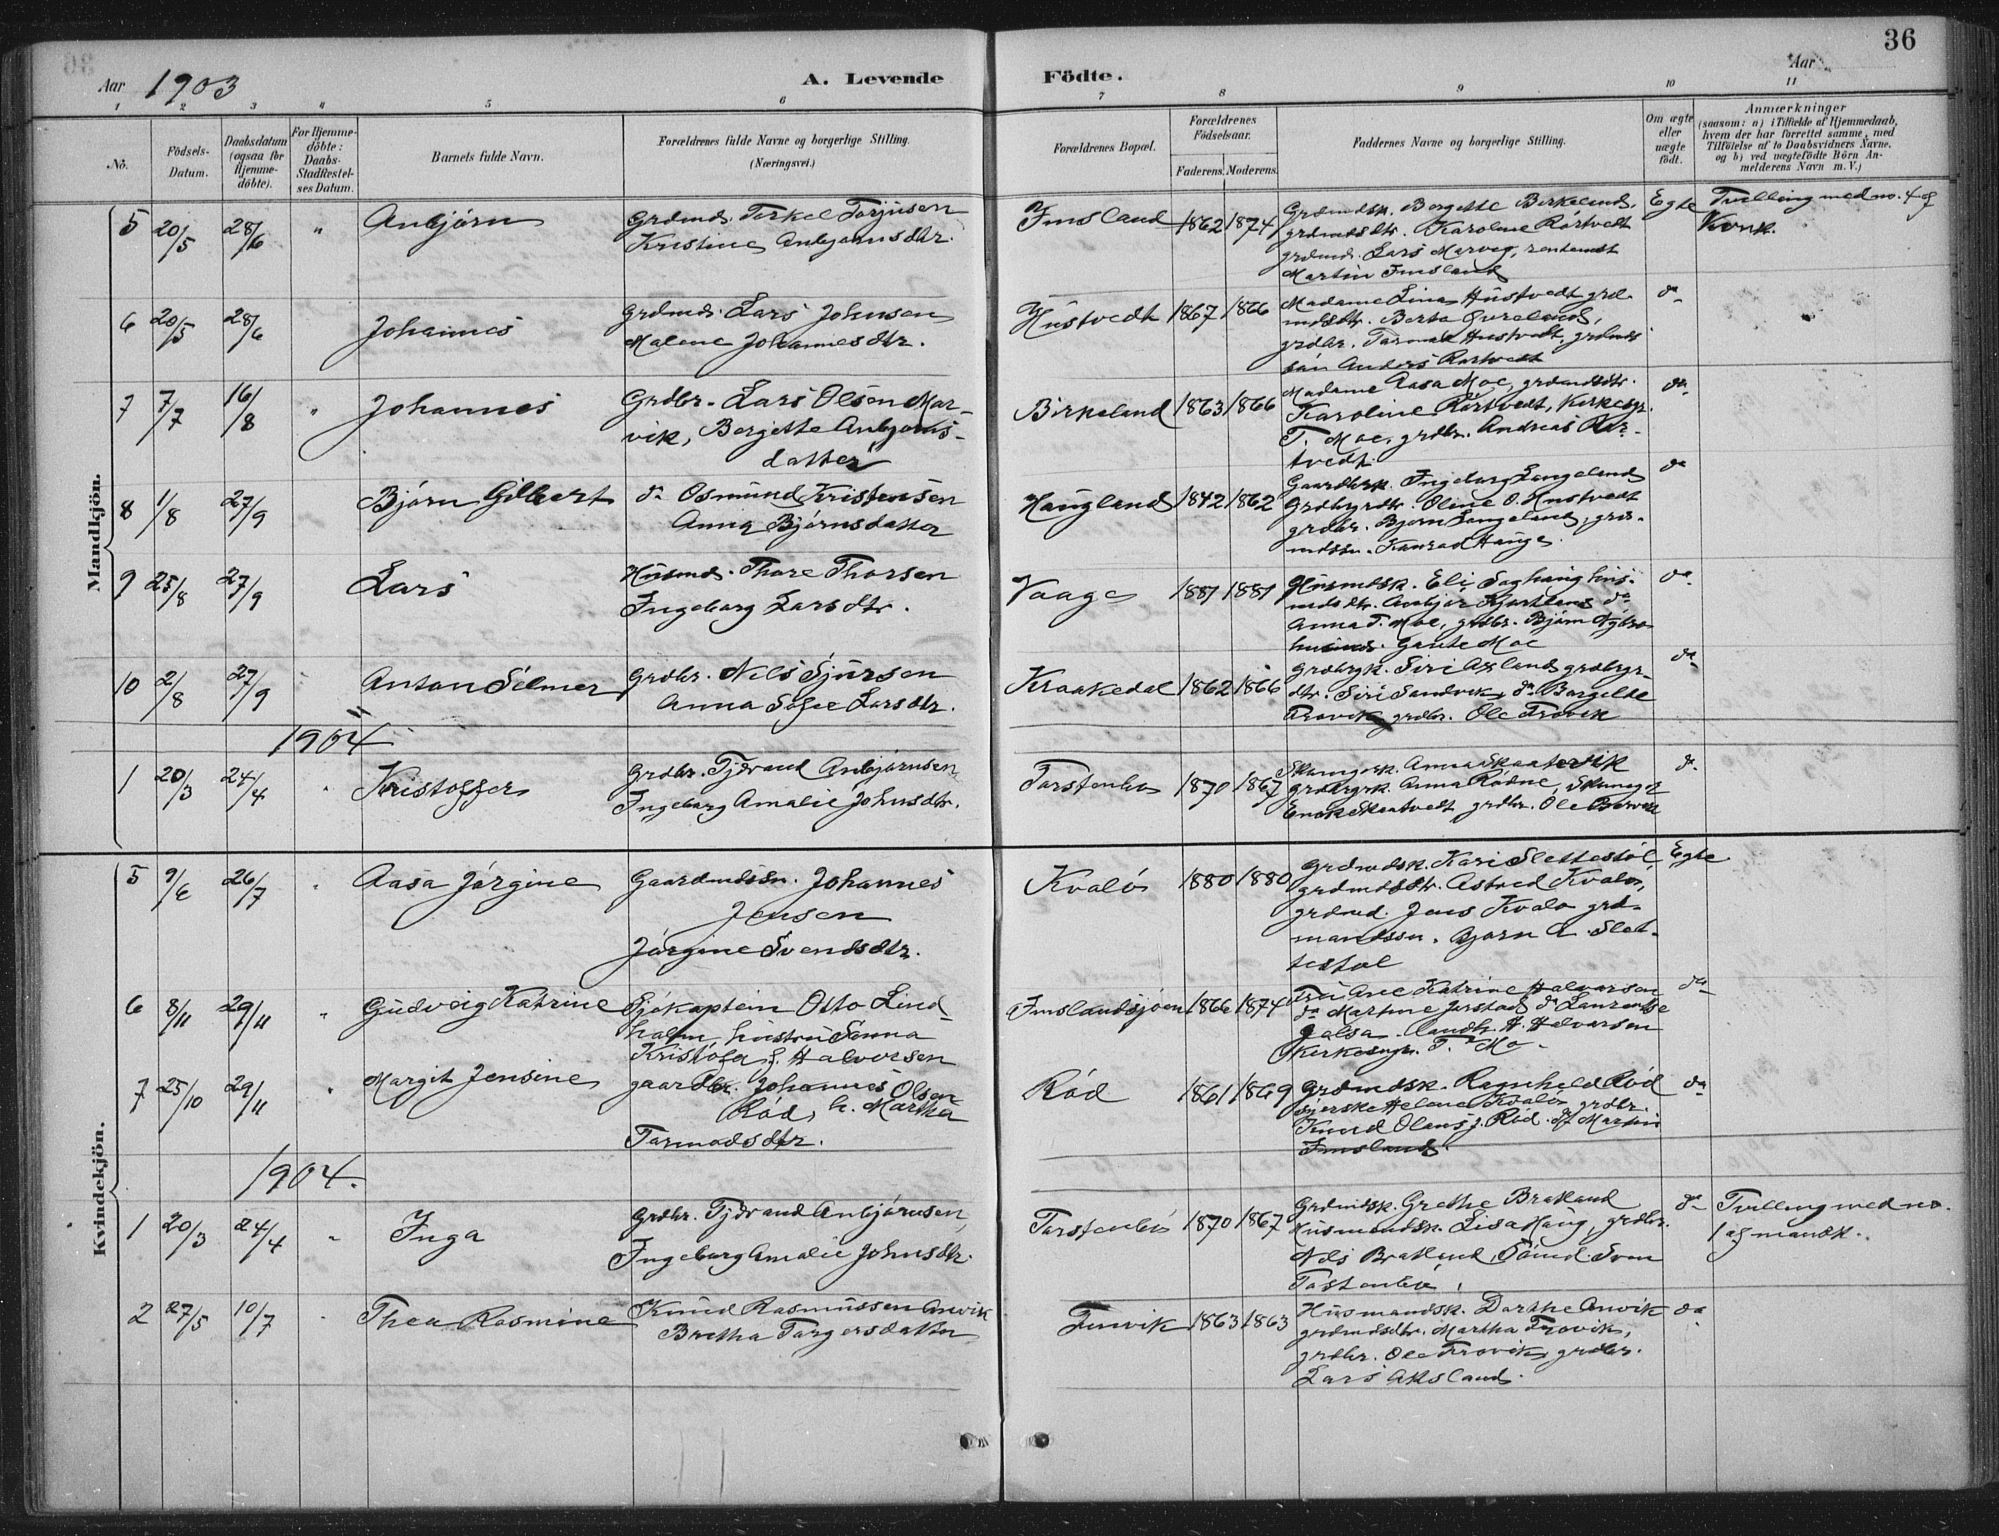 36
Aar 1903
A. Levende Födte.
Aar
1 2 3 4 5 6 7 8 9 10 11
No.
Födsels-Datum.
Daabsdatum (ogsaa for Hjemme-döbte).
For Hjemme-döbte: Daabs-Stadfæstel-ses Datum.
Barnets fulde Navn.
Forældrenes fulde Navne og borgerlige Stilling.
(Næringsvei.)
Forældrenes Bopæl.
Forældrenes Födselsaar.
Faderens. Moderens.
Faddernes Navne og borgerlige Stilling.
Om ægte eller uægte födt.
Anmærkninger
(saasom: a) i Tilfælde af Hjemmedaab,
hvem der har forrettet samme, med
Tilföielse af to Daabsvidners Navne,
og b) ved uægtefödte Börn An-
melderens Navn m. V.)
Mandkjön.
5 20/5 28/6 " Anbjørn
Grdmd. Torkel Torjusen
Kristine Anbjørnsdtr.
Imsland 1862 1874
Grdmdsk. Bergitte Birkeland,
grdmdsdtr. Karoline Rørtvedt
grdmd. Lars Marveg,
Martin Imsland
Egte
Tvilling med no. 4 af
Kvnk.
6 20/5 28/6 Johannes
Grdmd. Lars Johnsen
Malene Johannesdtr.
Hustvedt 1867 1866
Madame Lina Hustvedt grd-
mdsdtr. Berta
grdbr. Tormod Hustvedt, grdmds
søn Anders Rørtvedt
do
7 7/7 16/8 " Johannes
Grdbr. Lars Olsen Mar-
vik, Bergitte Anbjørns-
datter
Birkeland 1863 1866
Madame Aasa Moe, grdmdsdtr.
Karoline Rørtvedt, Kirkesgr.
T. Moe, grdbr. Andreas Rør-
tvedt
do
8 1/8 27/9 Bjørn Gilbert
do Osmund Kristensen
Anna Bjørnsdatter
Haugland 1842 1862
Gaardbrk. Ingeborg Langeland
Grdbrgrdtr. Oline O. Hustvedt
grdbr. Bjørn Langeland, grd-
mdssn. Konrad Hauge.
do
9 25/8 27/9 Lars
Husmd. Thore Thorsen
Ingeborg Larsdtr.
Vaage 1881 1881
Husmdsk. Eli Saghaug hus-
mdsdtr. do
Anna T. Moe, grdbr. Bjørn
husmd. Gaute Moe
do
10 2/8 27/9 Anton Selmer
Grdbr. Nils Sjursen
Anna Sofie Larsdtr.
Kraakedal 1862 1866
Grdbrgk. Siri Axland grdbrgr-
dtr. Siri Sandvik, do Borgilde
Frovik, grdbr. Ole Frovik
do
1904
1 20/3 24/4 " Kristoffer
Grdbr. Tjdrand Anbjørnsen
Ingeborg Amalie Johnsdtr.
Torstenbø 1870 1867
Skomgsk. Anna Skaatevik
grdbrgk. Anna Rødne, Skomagr
Enok Skeatvedt grdbr. Ole
do
Kvindekjön.
5 9/6 26/7 " Aasa Jørgine
Gaardmdssn. Johannes
Jensen
Jørgine Svendsdtr.
Kvalø 1880 1880
Grdmdsk. Kari Slettestøl
grdmdsdtr. Astred Kvalø,
grdmd. Jens Kvalø grd-
mandssn. Bjørn Slet-
testøl
Egte
6 8/11 29/11 " Gudveig Katrine
Sjøkaptein Otto Lind-
holm, hustru Anna
Kristofa f. Halvorsen
Imslandsjøen 1866 1874
Fru Ane Katrine Halvorsen
do Martine Jørstad, do Laurentse
Jelsa. Landh. H. Halvorsen
Kirkesngr. T. Mo.
do
7 25/10 29/11 " Margit Jensine
gaardbr. Johannes Olsen
Rød, h. Martha
Tormodsdtr.
Rød 1861 1869
Grdmdsk. Ragnhild Rød
Syerske Helene Kvalø grdbr.
Knud Olaus J. Rød. do Martin
Imsland
do
1904.
1 20/3 24/4 " Inga
Grdbr. Tjdrand Anbjørnsen
Ingeborg Amalie Johnsdtr.
Torstenbø 1870 1867
Grdmdsk. Grethe Bratland
Husmandsk. Lisa Haug, grdbr.
Nils Bratland, Sven
Tostenbø.
do
Tvilling med no.
1 af mandk.
2 27/5 10/7 " Thea Rasmine
Knud Rasmussen Anvik
Bretha Torgersdatter
1863 1863
Husmandsk. Dorthe Anvik
grdmdsdtr. Martha Frovik,
grdbr. Ole Frovik, grdbr.
Lars Aksland.
do